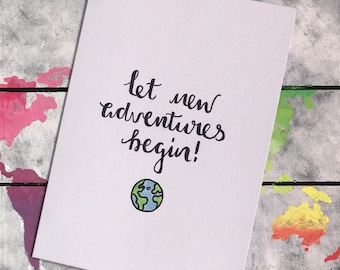 let new
adventures
begin!